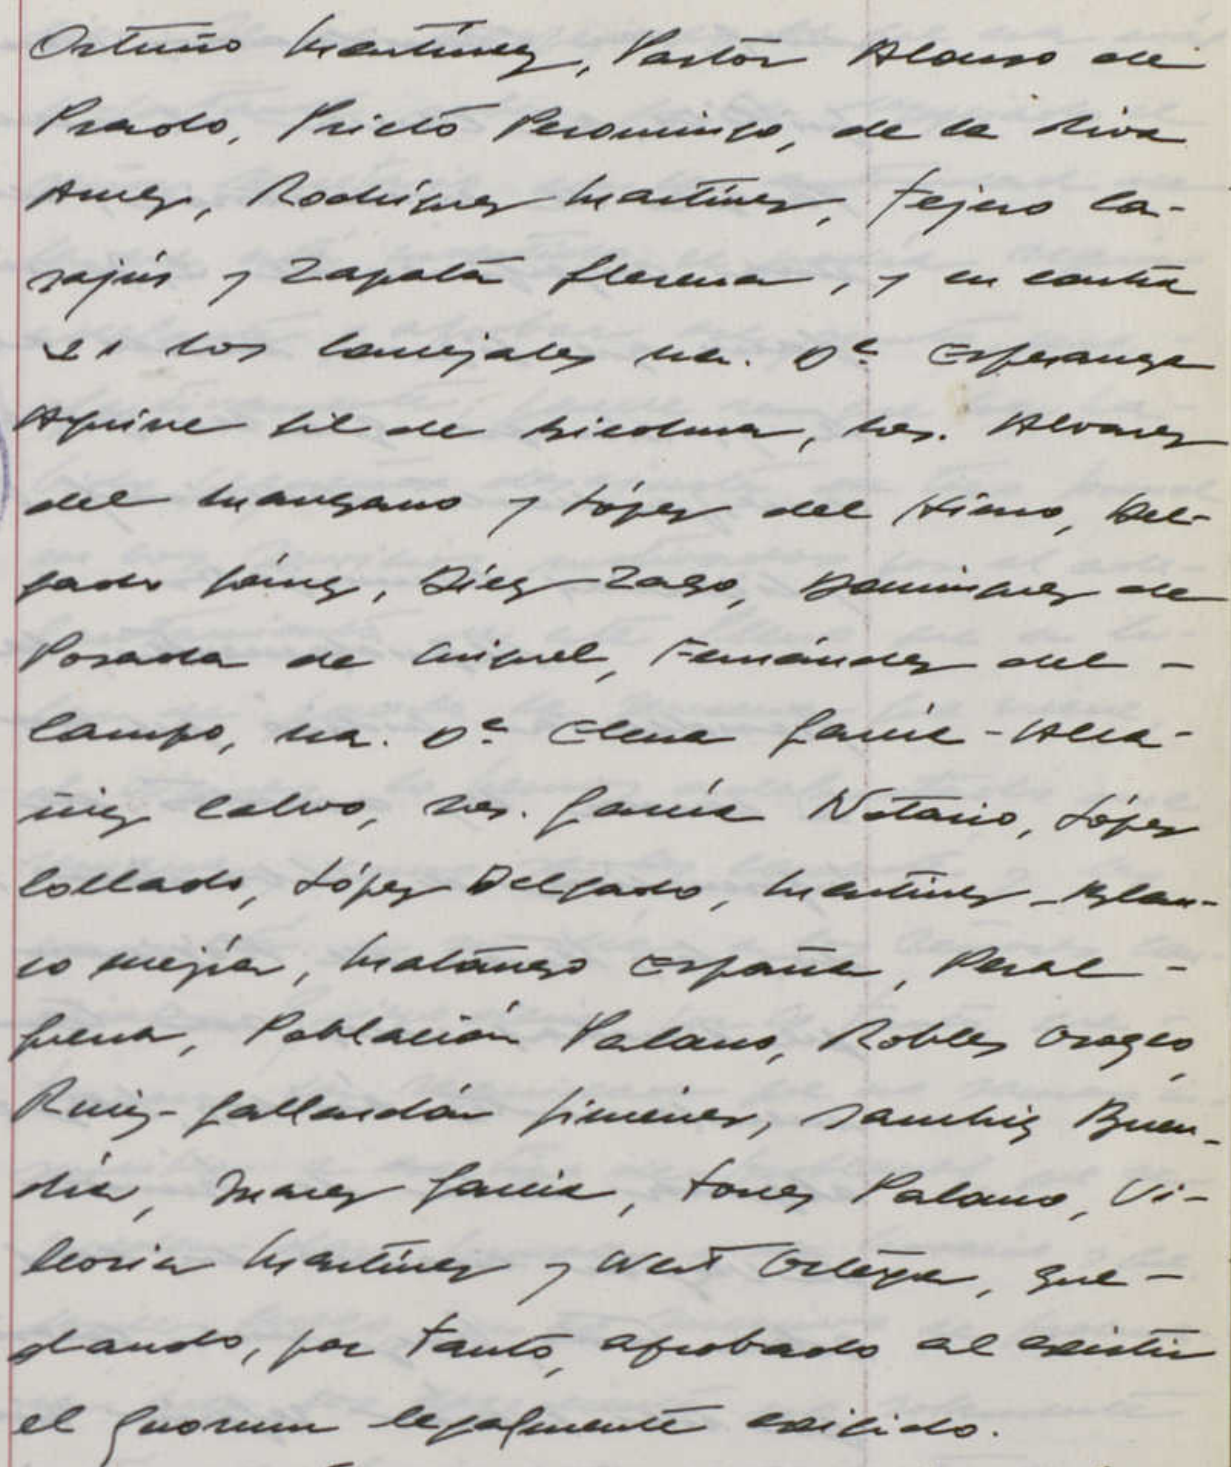 Ortuño Martínez, Pastor Alonso de
Prado, Prieto Peromingo, de la Riva
Amez, Rodríguez Martínez, Tejero Ca-
sajús y Zapata Llerena, y en contra
21 los Concejales Sra. Dª Esperanza
Aguirre Gil de Biedma, Sres. Alvarez
del Manzano y López del Hierro, Del-
gado Gómez, Díez Zazo, Dominguez de
Posada de Miguel, Fernández del -
Campo, Sra. Dª Elena García-Alca-
ñiz Calvo, Sres. García Notario, López
Collado, López Delgado, Martínez-Blan-
co Mejía, Matanzo España, Peral -
Guerra, Población Palano, Robles Orozco,
Ruiz-Gallardón Jiménez, Sanchiz Buen-
día, Suarez García, Torres Palano, Vi-
lloria Martínez y West Ortega, que-
dando, por tanto, aprobado al existir
el quorum legalmente exigido.